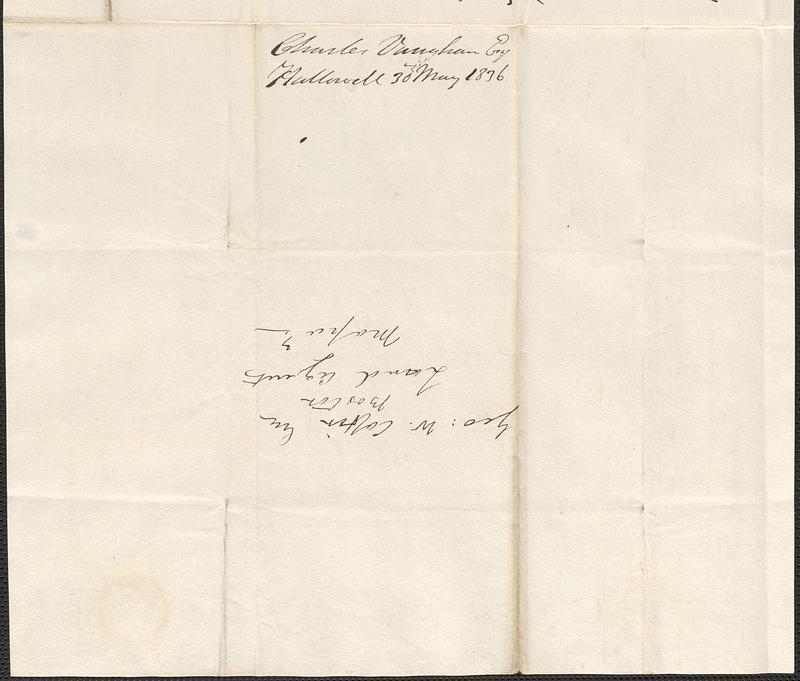 Charles Vaughan Esq
Hallowell 30 May 1836
Geo: W. Coffin Esq
Boston
Land Agent
Massts